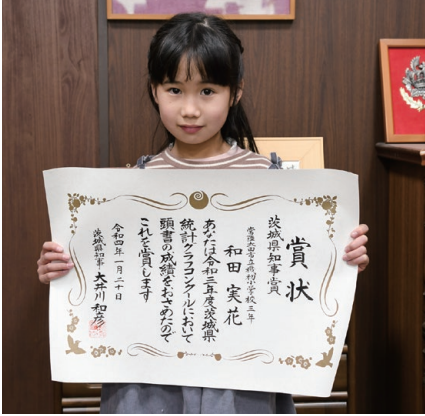 賞状
茨城県知事賞
常陸太田市立峰山小学校三年
和田実花
あなたは令和三年度茨城県
統計グラフコンクールにおいて
頭書の成績をおさめたので
これを賞します
令和四年一月二十日
茨城県知事 大井川和彦